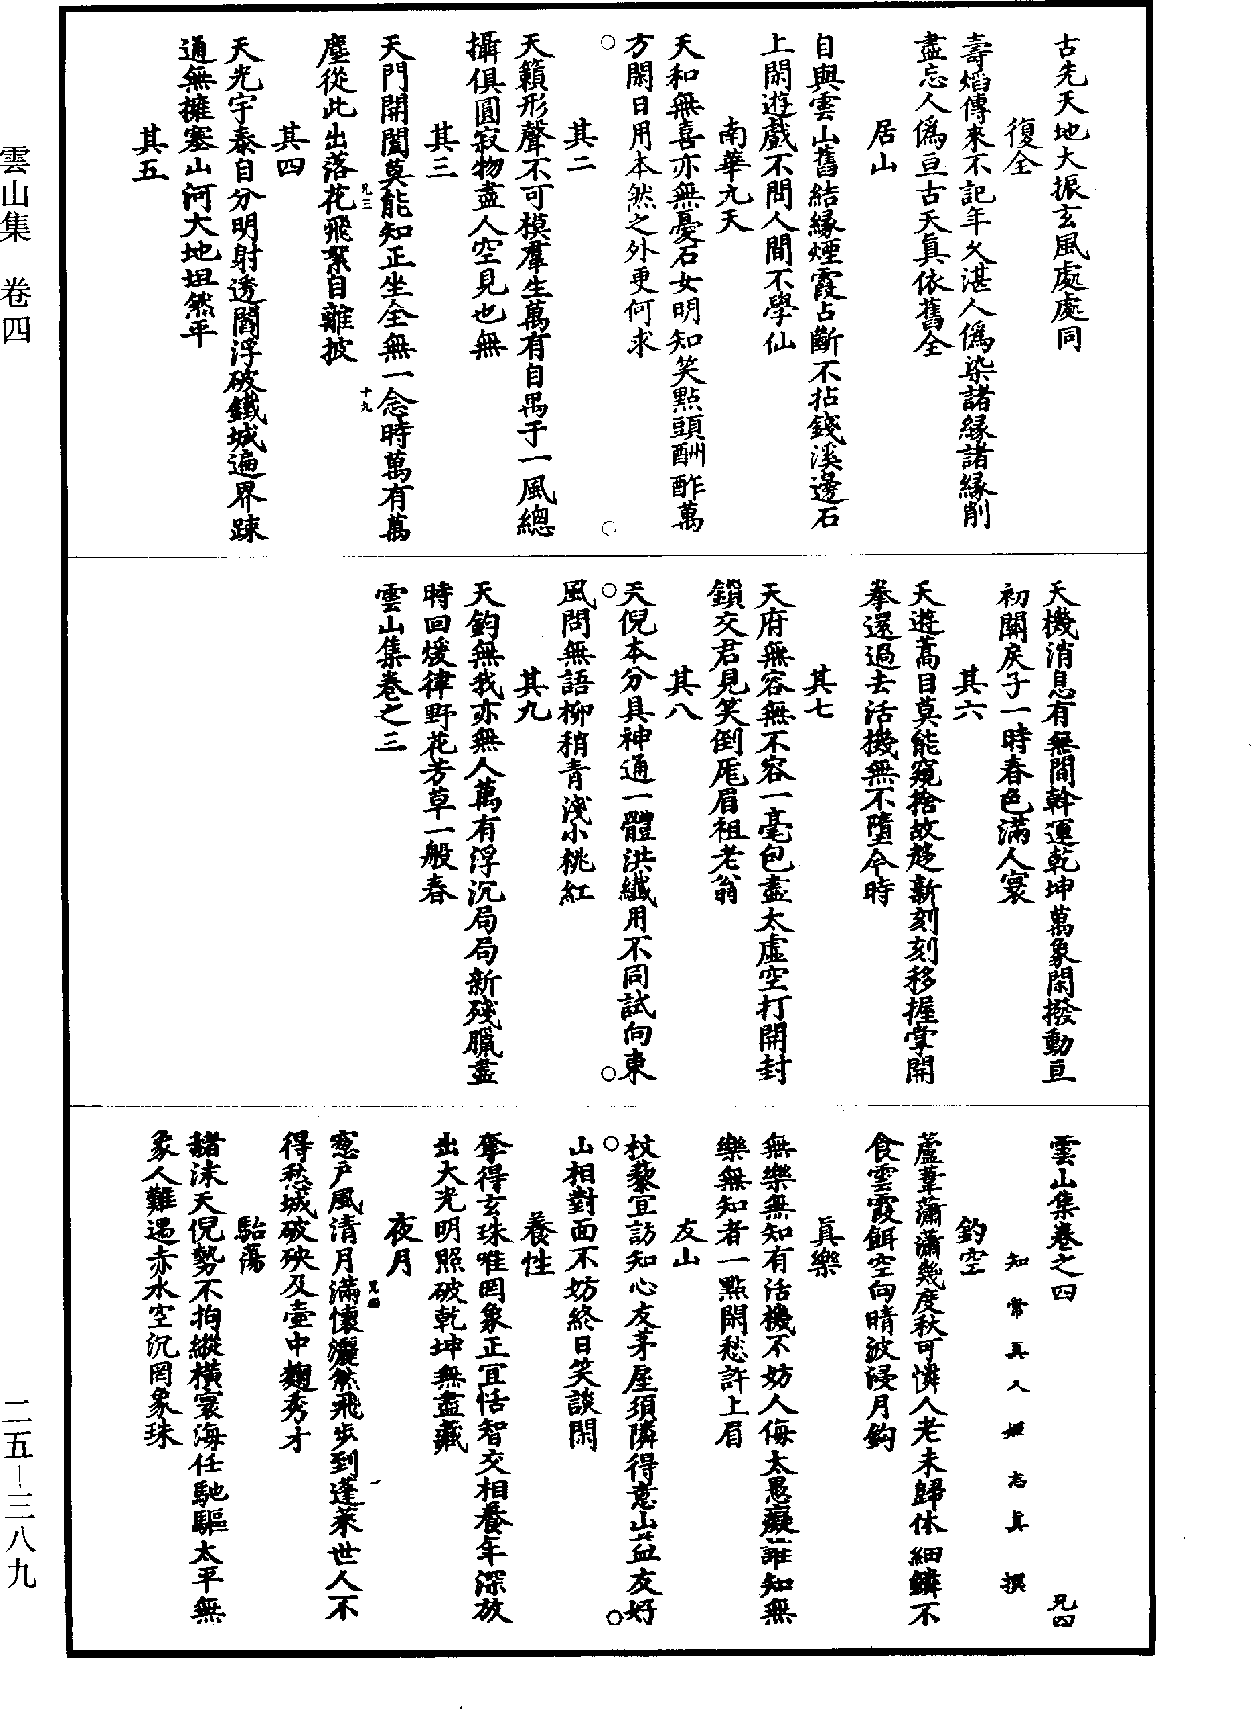 古先天地大振玄風處處同
復全
壽熖傳來不記年久湛人僞染諸緣諸緣削
盡忘人僞亘古天真依舊全
居山
自與雲山舊結緣煙霞占斷不拈錢溪邊石
上閑遊戲不問人間不學仙
南華九天
天和無喜亦無憂石女明知笑點頭酬酢萬
方閑日用本然之外更何求
其二
天籟形聲不可模羣生萬有自號于一風總
攝俱圓寂物盡人空見也無
其三
天門開闔莫能知正坐全無一念時萬有萬
塵從此出落花飛絮自離披
兄三
十九
其四
天光宇泰自分明射透閻浮破鐵城遍界踈
通無擁塞山河大地坦然平
其五
天機消息有無間斡運乾坤萬象閑撥動亘
初關戾子一時春色滿人寰
其六
天遊蒿目莫能窺捨故趍新刻刻移握掌開
拳還過去活機無不墮今時
其七
天府無容無不容一毫包盡太虛空打開封
鎖交君見笑倒厖眉祖老翁
其八
天倪本分具神通一體洪纖用不同試向東
風問無語柳稍青淺小桃紅
其九
天鈞無我亦無人萬有浮沉局局新殘臘盡
時回煖律野花芳草一般春
雲山集卷之三
雲山集卷之四 兄四
知常真人姬志真撰
釣空
蘆葦瀟瀟幾度秋可憐人老未歸休細鱗不
食雲霞餌空向晴波浸月鉤
真樂
無樂無知有活機不妨人侮太愚癡誰知無
樂無知者一點閑愁許上眉
友山
杖藜宜訪知心友茅屋須隣得意山益友好
山相對面不妨終日笑談閑
養性
奪得玄珠唯罔象正宜恬智交相養年深放
出大光明照破乾坤無盡藏
夜月
窓戶風清月滿懷灑然飛步到蓬萊世人不
得愁城破殃及壺中麴秀才
兄四
一
駘蕩
赭沫天倪勢不拘縱橫寰海任馳驅太平無
象人難遇赤水空沉罔象珠
雲山集 卷四
二五—三八九